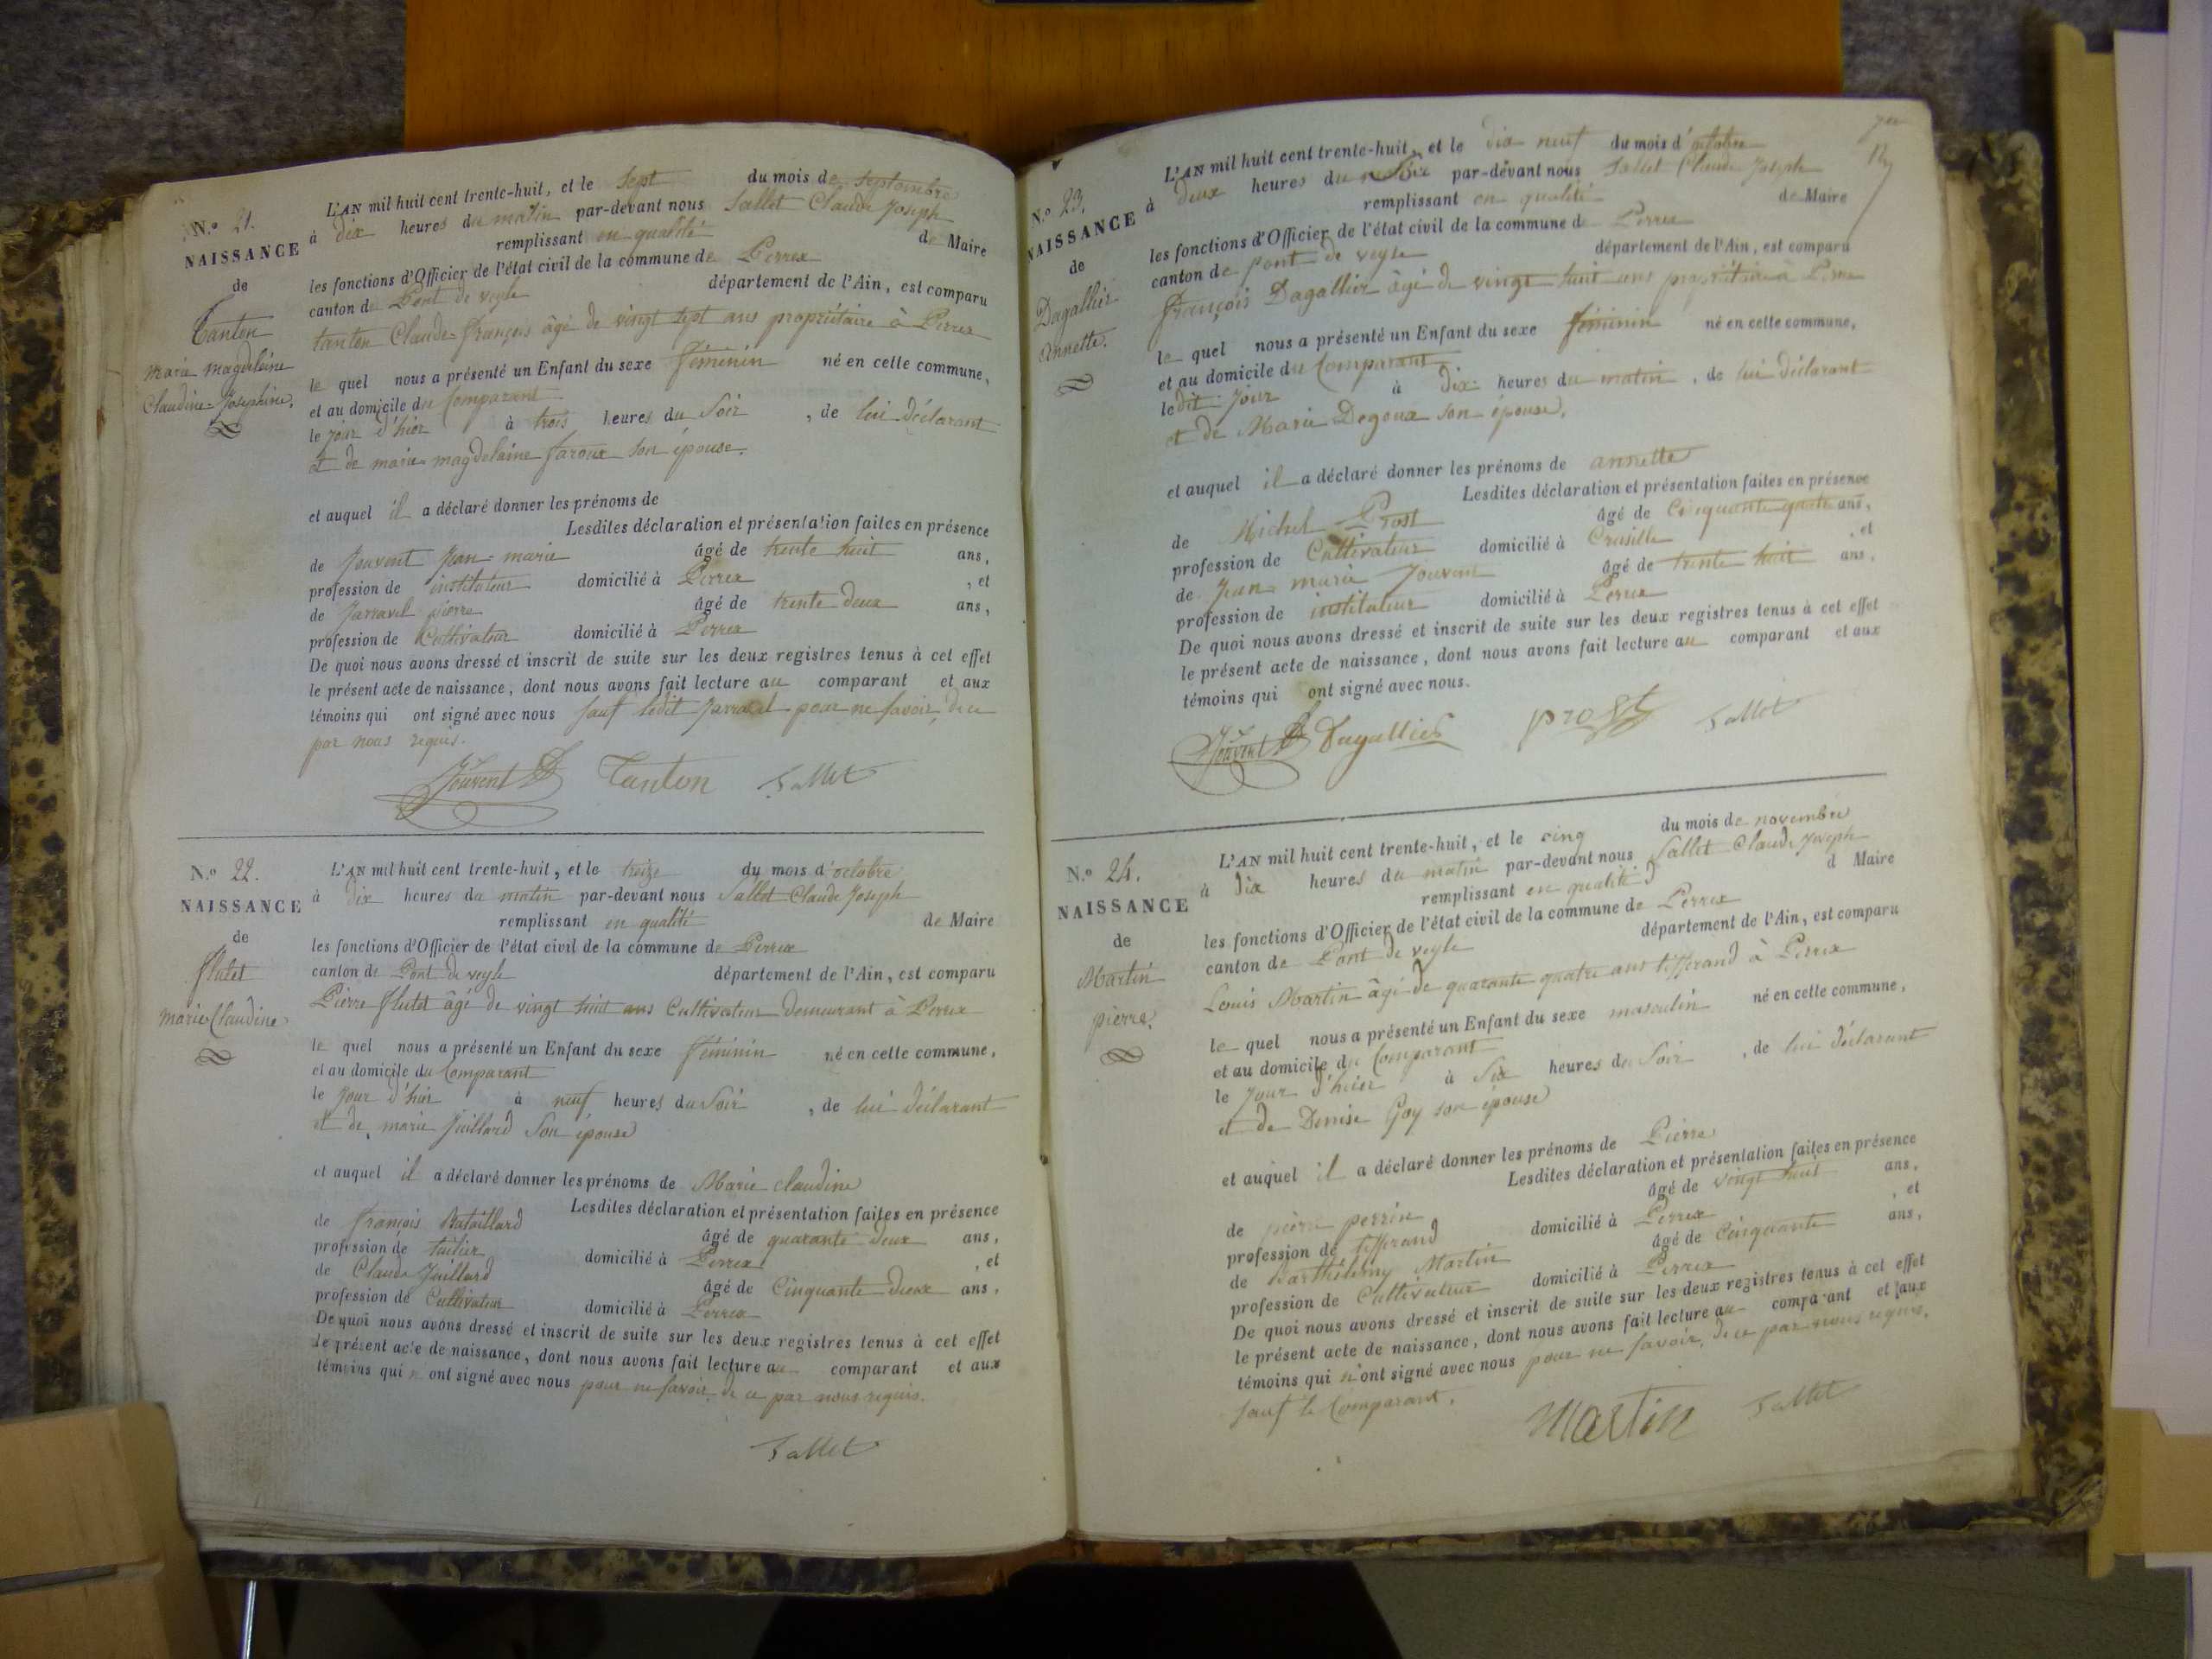 N.o 21.
NAISSANCE
de
Tanton
marie magdelaine
Claudine-Josephine.
L'AN mil huit cent trente-huit, et le sept du mois de septembre
à dix heures du matin par-devant nous Sallet Claude Joseph
remplissant en qualité de Maire
les fonctions d'Officier de l'état civil de la commune de Perrex
canton de Pont de veyle département de l'Ain, est comparu
tanton Claude-françois âgé de vingt sept ans propriétaire à Perrex
le quel nous a présenté un Enfant du sexe féminin né en cette commune,
et au domicile du Comparant
le jour d'hier à trois heures du Soir, de lui déclarant
et de marie magdelaine faroux son épouse.
et auquel il a déclaré donner les prénoms de
Lesdites déclaration et présentation faites en présence
de Jouvent Jean-marie âgé de trente huit ans,
profession de instituteur domicilié à Perrex, et
de Jarravel pierre âgé de trente deux ans,
profession de Cultivateur domicilié à Perrex
De quoi nous avons dressé et inscrit de suite sur les deux registres tenus à cet effet
le présent acte de naissance, dont nous avons fait lecture au comparant et aux
témoins qui ont signé avec nous sauf ledit Jarravel pour ne savoir, de ce
par nous requis.
Jouvent Tanton Sallet
N.o 22.
NAISSANCE
de
flutet
marie Claudine
L'AN mil huit cent trente-huit, et le treize du mois d'octobre
à dix heures du matin par-devant nous Sallet Claude Joseph
remplissant en qualité de Maire
les fonctions d'Officier de l'état civil de la commune de Perrex
canton de Pont de veyle département de l'Ain, est comparu
Pierre flutet âgé de vingt huit ans Cultivateur demeurant à Perrex
le quel nous a présenté un Enfant du sexe féminin né en cette commune,
et au domicile du Comparant
le jour d'hier à neuf heures du Soir, de lui déclarant
et de marie Juillard Son épouse
et auquel il a déclaré donner les prénoms de Marie claudine
Lesdites déclaration et présentation faites en présence
de françois Bataillard âgé de quarante deux ans,
profession de domicilié à Perrex, et
de Claude Juillard âgé de Cinquante deux ans,
profession de Cultivateur domicilié à Perrex
De quoi nous avons dressé et inscrit de suite sur les deux registres tenus à cet effet
le présent acte de naissance, dont nous avons fait lecture au comparant et aux
témoins qui n'ont signé avec nous pour ne savoir, de ce par nous requis.
Sallet
N.o 23.
NAISSANCE
de
Dagallier
annette.
L'AN mil huit cent trente-huit, et le dix neuf du mois d'octobre
à deux heures du Soir par-devant nous Sallet Claude Joseph
remplissant en qualité de Maire
les fonctions d'Officier de l'état civil de la commune de Perrex
canton de pont de veyle département de l'Ain, est comparu
françois Dagallier âgé de vingt huit ans propriétaire à Perrex
le quel nous a présenté un Enfant du sexe féminin né en cette commune,
et au domicile du Comparant
ledit jour à dix heures du matin, de lui déclarant
et de Marie Degoux son épouse.
et auquel il a déclaré donner les prénoms de annette
Lesdites déclaration et présentation faites en présence
de Michel Prost âgé de Cinquante quatre ans,
profession de Cultivateur domicilié à Crusille, et
de Jean marie Jouvent âgé de trente huit ans,
profession de instituteur domicilié à Perrex
De quoi nous avons dressé et inscrit de suite sur les deux registres tenus à cet effet
le présent acte de naissance, dont nous avons fait lecture au comparant et aux
témoins qui ont signé avec nous.
Jouvent Dagallier prost Sallet
N.o 24.
NAISSANCE
de
Martin
pierre.
L'AN mil huit cent trente-huit, et le cinq du mois de novembre
à dix heures du matin par-devant nous Sallet Claude Joseph
remplissant en qualité d Maire
les fonctions d'Officier de l'état civil de la commune de Perrex
canton de Pont de veyle département de l'Ain, est comparu
Louis Martin âgé de quarante quatre ans tisserand à Perrex
le quel nous a présenté un Enfant du sexe masculin né en cette commune,
et au domicile du Comparant
le jour d'hier à Six heures du Soir, de lui déclarant
et de Denise Goy son épouse
et auquel il a déclaré donner les prénoms de Pierre
Lesdites déclaration et présentation faites en présence
de pierre perrin âgé de vingt huit ans,
profession de tisserand domicilié à Perrex, et
de Barthélemy Martin âgé de Cinquante ans,
profession de Cultivateur domicilié à Perrex
De quoi nous avons dressé et inscrit de suite sur les deux registres tenus à cet effet
le présent acte de naissance, dont nous avons fait lecture au comparant et aux
témoins qui n'ont signé avec nous pour ne savoir, de ce par nous requis,
sauf le Comparant.
Martin Sallet